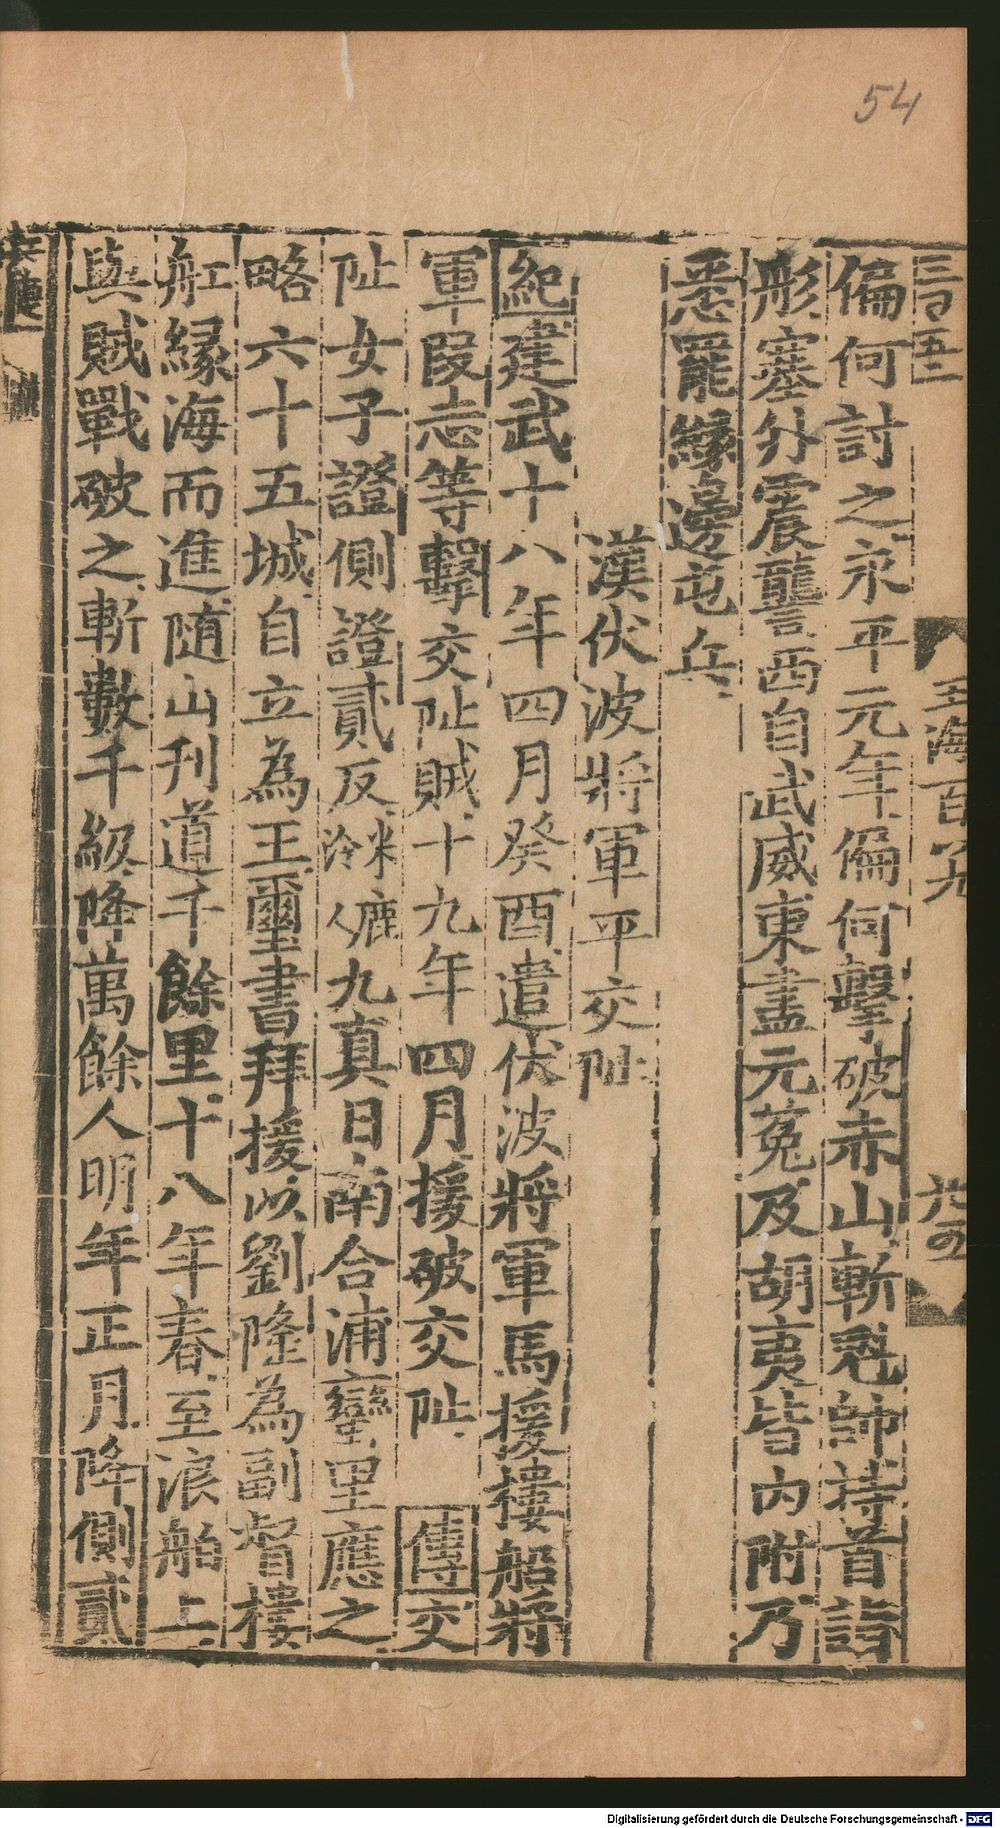 54
偏何討之永平元年偏何擊破赤山斬魁帥持首詣
形塞外震讋西自武威東盡元菟及胡夷皆内附乃
悉罷縁邊屯兵
漢伏波將軍平交阯
紀建武十八年四月癸酉遣伏波將軍馬援樓船將
軍段志等擊交阯賊十九年四月援破交阯 傳交
阯女子證側證貳反 麊泠 九真日南合浦蠻里應之
略六十五城自立為王璽書拜援以劉隆為副督樓
舩縁海而進随山刊道千餘里十八年春至浪舶上
與賊戰破之斬數千級降萬餘人明年正月降側貳
Digitalisierung gefördert durch die Deutsche Forschungsgemeinschaft - DFG